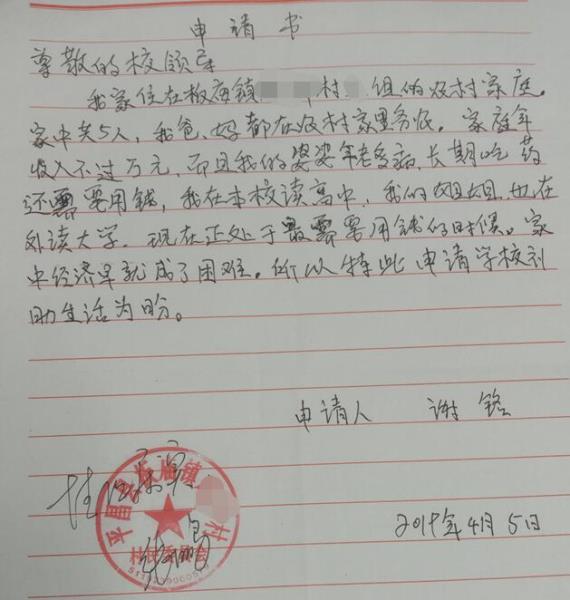 申请书
尊敬的校领导
我家住在板庙镇 村 组的农村家庭。
家中共5人,我爸、妈都在农村家里务农。家庭年
收入不过万元,而且我的婆婆年老多病,长期吃药
还需要用钱,我在本校读高中,我的姐姐也在
外读大学。现在正处于最需要用钱的时候。家
中经济早就成了困难。所以特此申请学校补
助生活为盼。
申请人 谢铭
情况属实
平昌县板庙镇 村
村民委员会
2019年4月5日